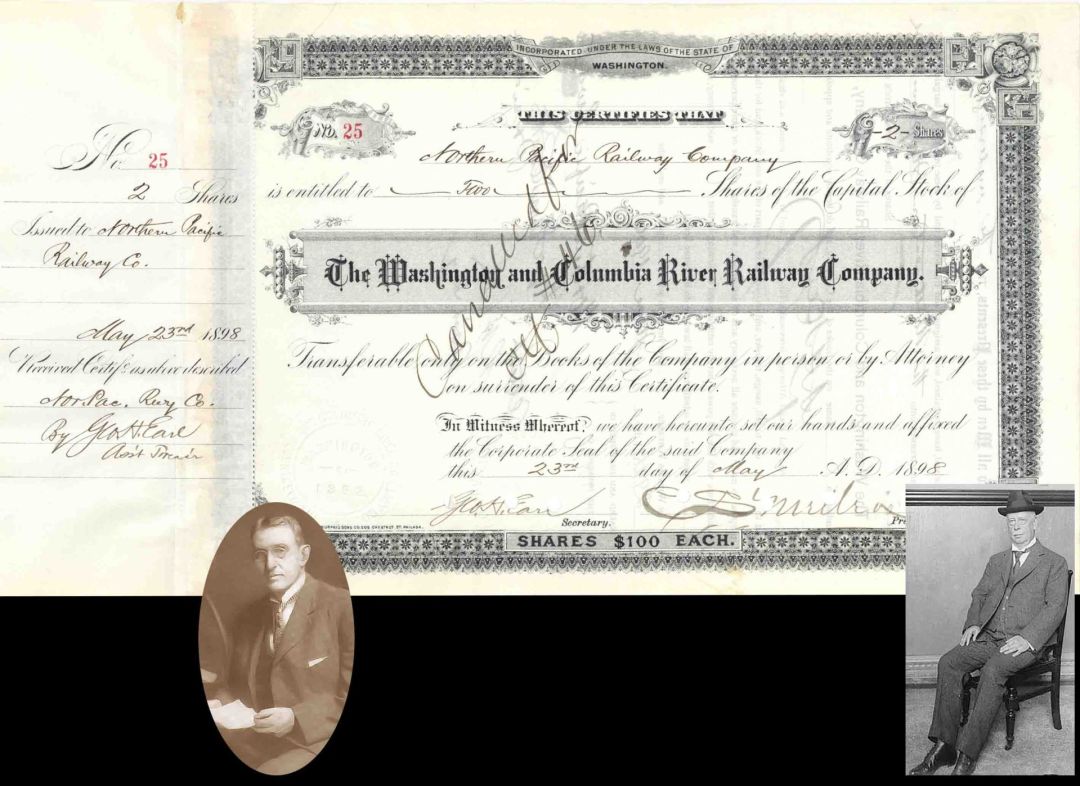 No. 25
2 Shares
Issued to Northern Pacific
Railway Co.
May 23rd 1898
Received Certif. as above described
Nor. Pac. Rwy Co.
By Geo H. Earl
Ass't Treas'r
INCORPORATED UNDER THE LAWS OF THE STATE OF
WASHINGTON.
THIS CERTIFIES THAT
No. 25
-2- Shares
Northern Pacific Railway Company
is entitled to Two Shares of the Capital Stock of
The Washington and Columbia River Railway Company.
Transferable only on the Books of the Company in person or by Attorney
on surrender of this Certificate.
In Witness Whereof, we have hereunto set our hands and affixed
the Corporate Seal of the said Company
this 23rd day of May A.D. 1898
Geo H. Earl
Secretary.
SHARES $100 EACH.